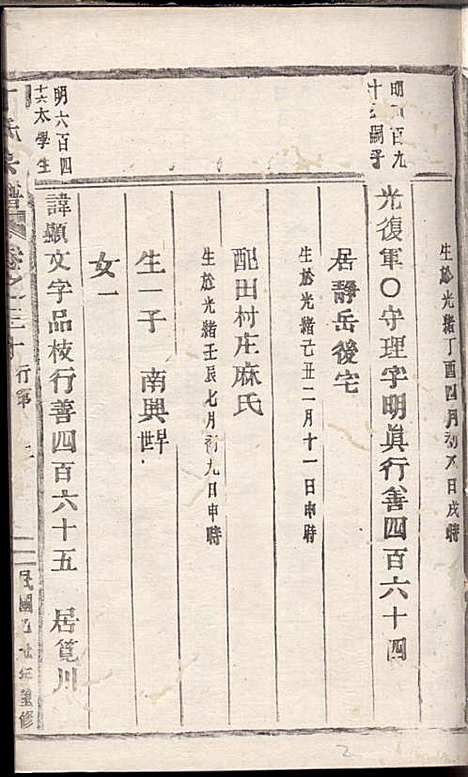 生於光緒丁酉四月初八日戌時
光復軍〇守理字明眞行善四百六十四
居靜岳後宅
生於光緒己丑二月十一日申時
配田村庄麻氏
生於光緒壬辰七月初九日申時
生一子 南興
女一
明六百四
十六太學生
諱顯文字品枝行善四百六十五 居筧川
卷之三十 行第